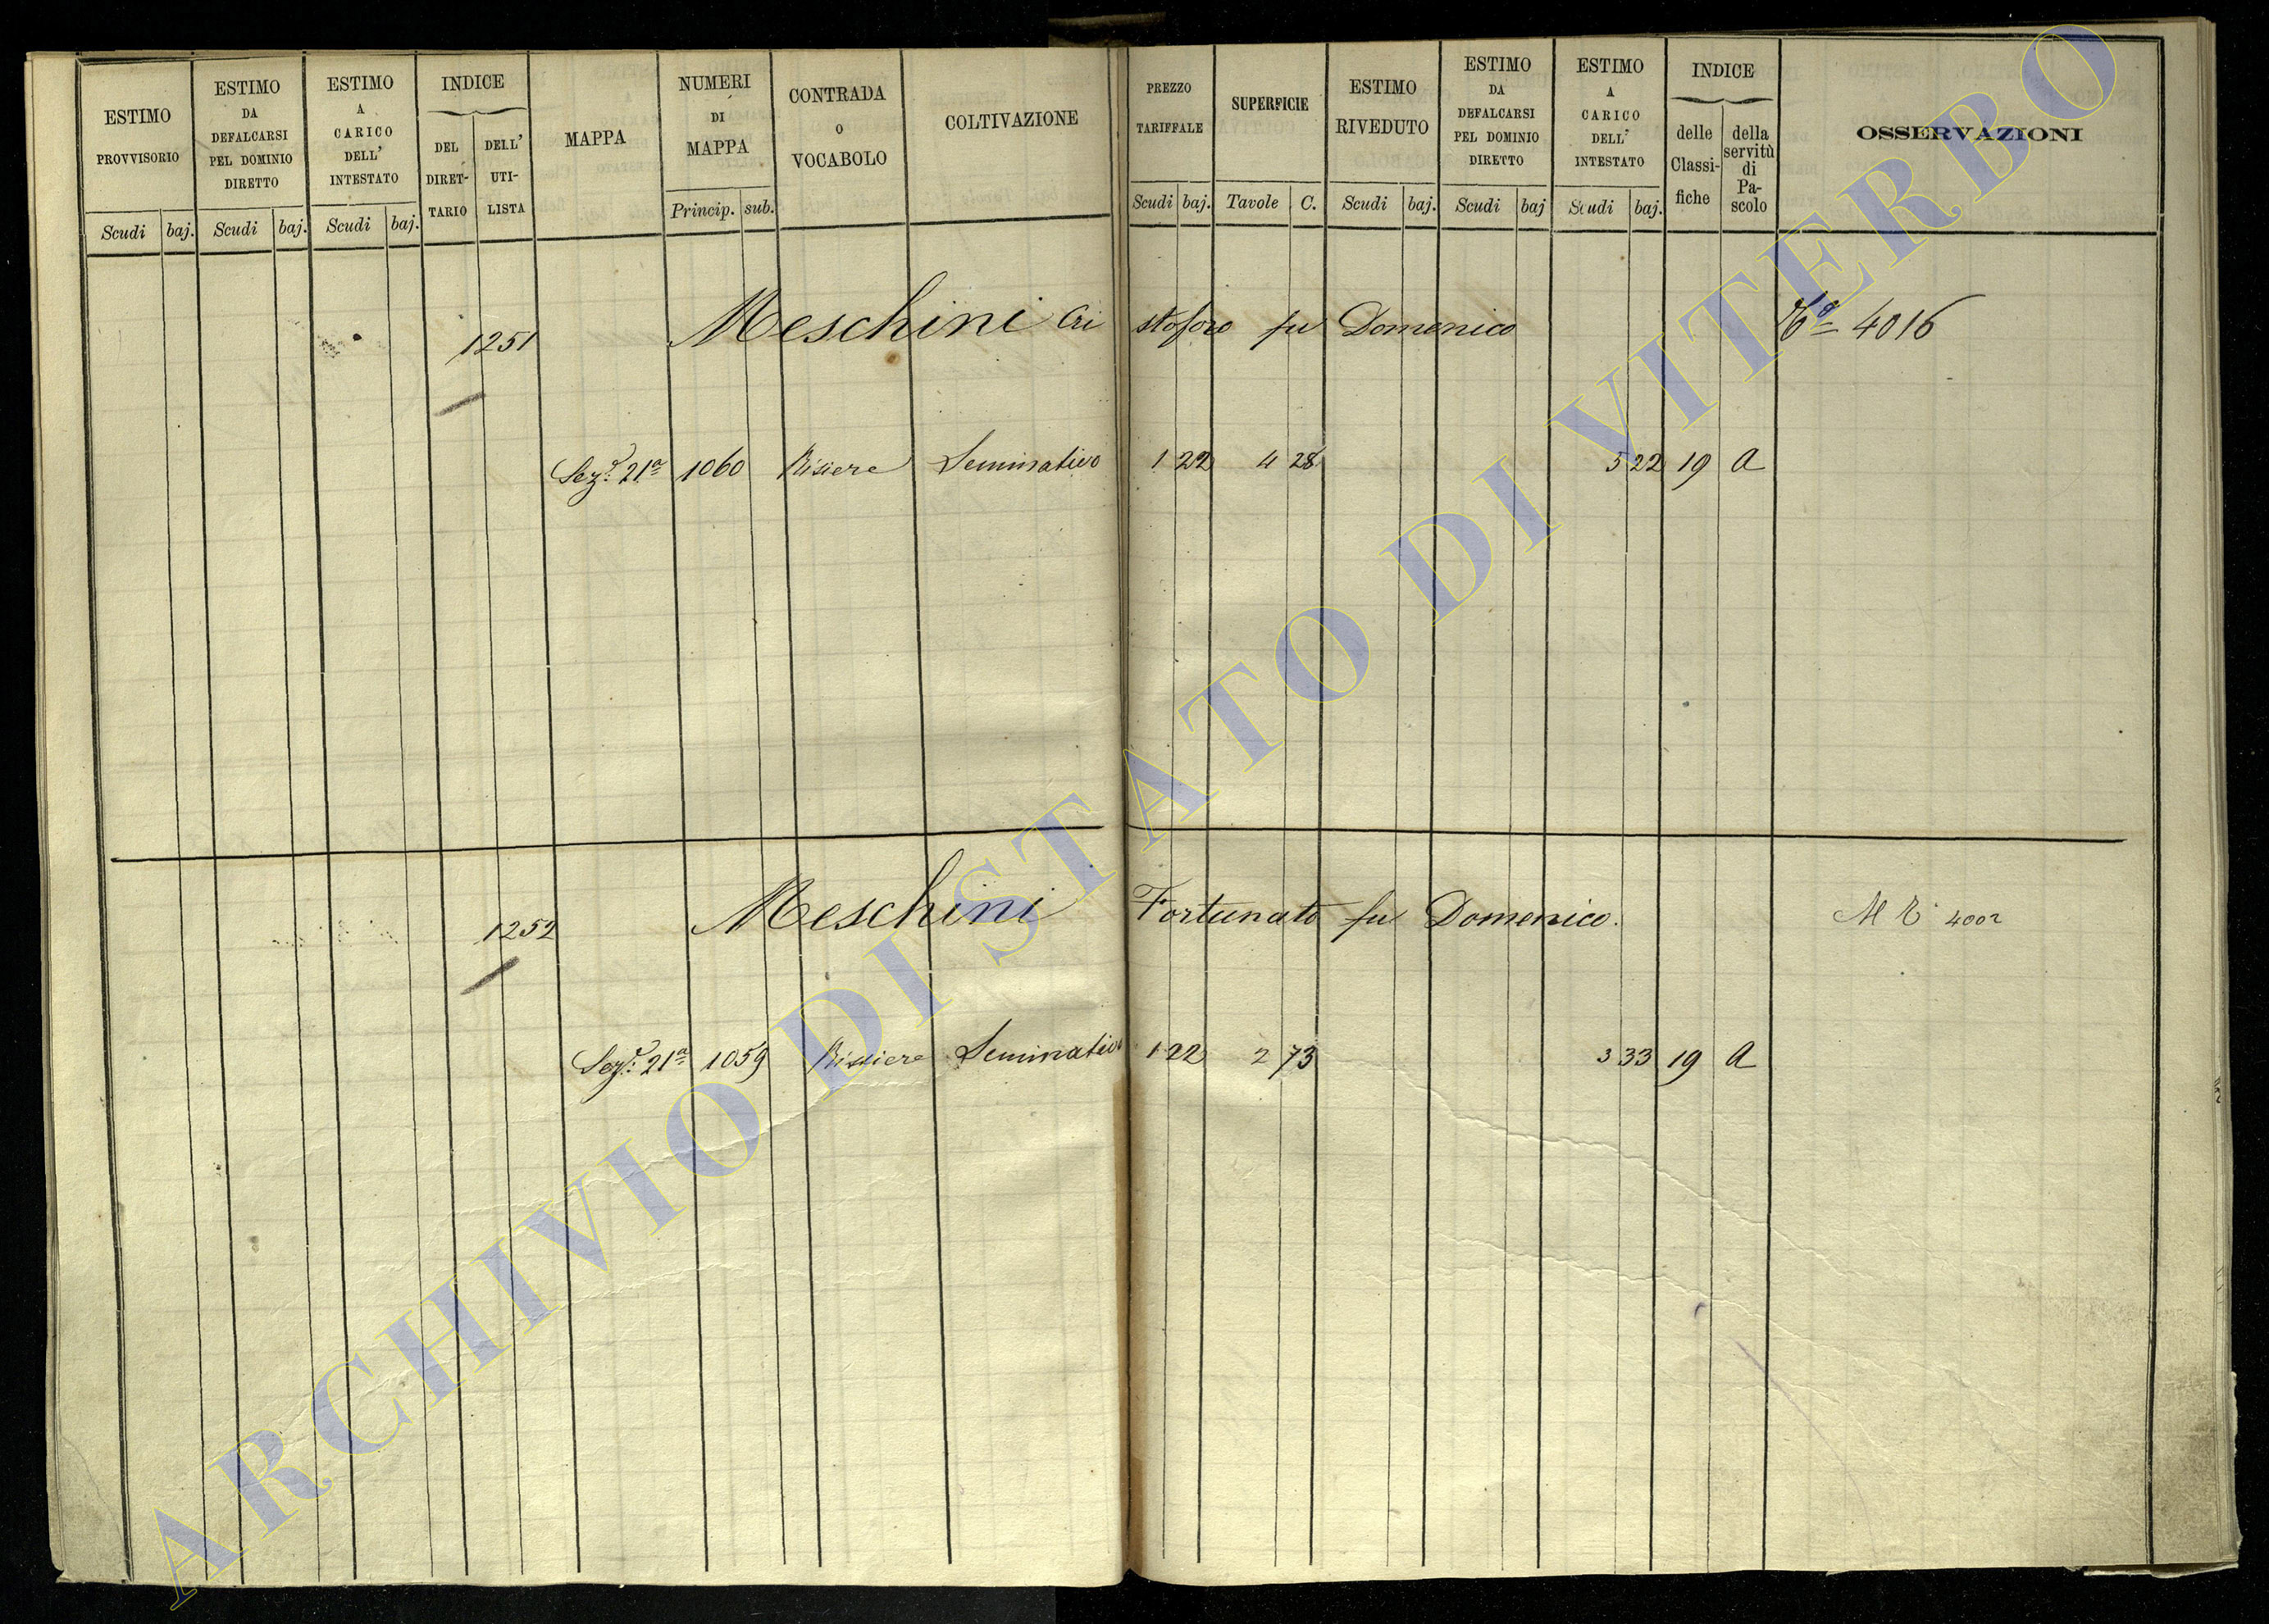 ESTIMO PROVVISORIO
Scudi baj.
ESTIMO DA DEFALCARSI PEL DOMINIO DIRETTO
Scudi baj.
ESTIMO A CARICO DELL' INTESTATO
Scudi baj.
INDICE
DEL DIRET-TARIO
DELL' UTI-LISTA
MAPPA
NUMERI DI MAPPA
Princip. sub.
CONTRADA O VOCABOLO
COLTIVAZIONE
PREZZO TARIFFALE
Scudi baj.
SUPERFICIE
Tavole C.
ESTIMO RIVEDUTO
Scudi baj.
ESTIMO DA DEFALCARSI PEL DOMINIO DIRETTO
Scudi baj
ESTIMO A CARICO DELL' INTESTATO
Scudi baj.
INDICE
delle Classi-fiche
della servitù di Pa-scolo
OSSERVAZIONI
1251 Meschini Cristoforo fu Domenico 4016
Sez. 21ª 1060 Risiere Seminativo 1 22 4 28 5 22 19 A
1252 Meschini Fortunato fu Domenico. 4002
Sez. 21ª 1059 Risiere Seminativo 1 22 2 73 3 33 19 A
ARCHIVIO DI STATO DI VITERBO